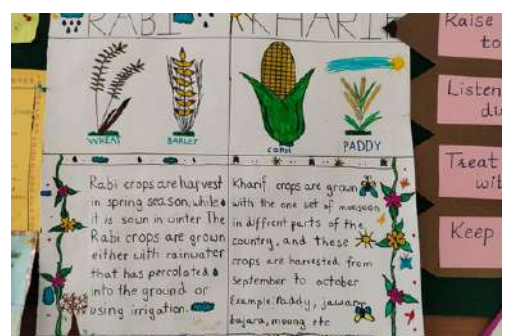 RABI
KHARIF
WHEAT
BARLEY
CORN
PADDY
Rabi crops are harvest
in spring season, while
it is sown in winter The
Rabi crops are grown
either with rainwater
that has percolated
into the ground or
using irrigation.
Kharif crops are grown
with the one set of monsoon
in diffrent parts of the
country, and these
crops are harvested from
September to october
Example: Paddy, jawar,
bajara, moong etc
Raise
to
Listen
du
Treat
wit
Keep